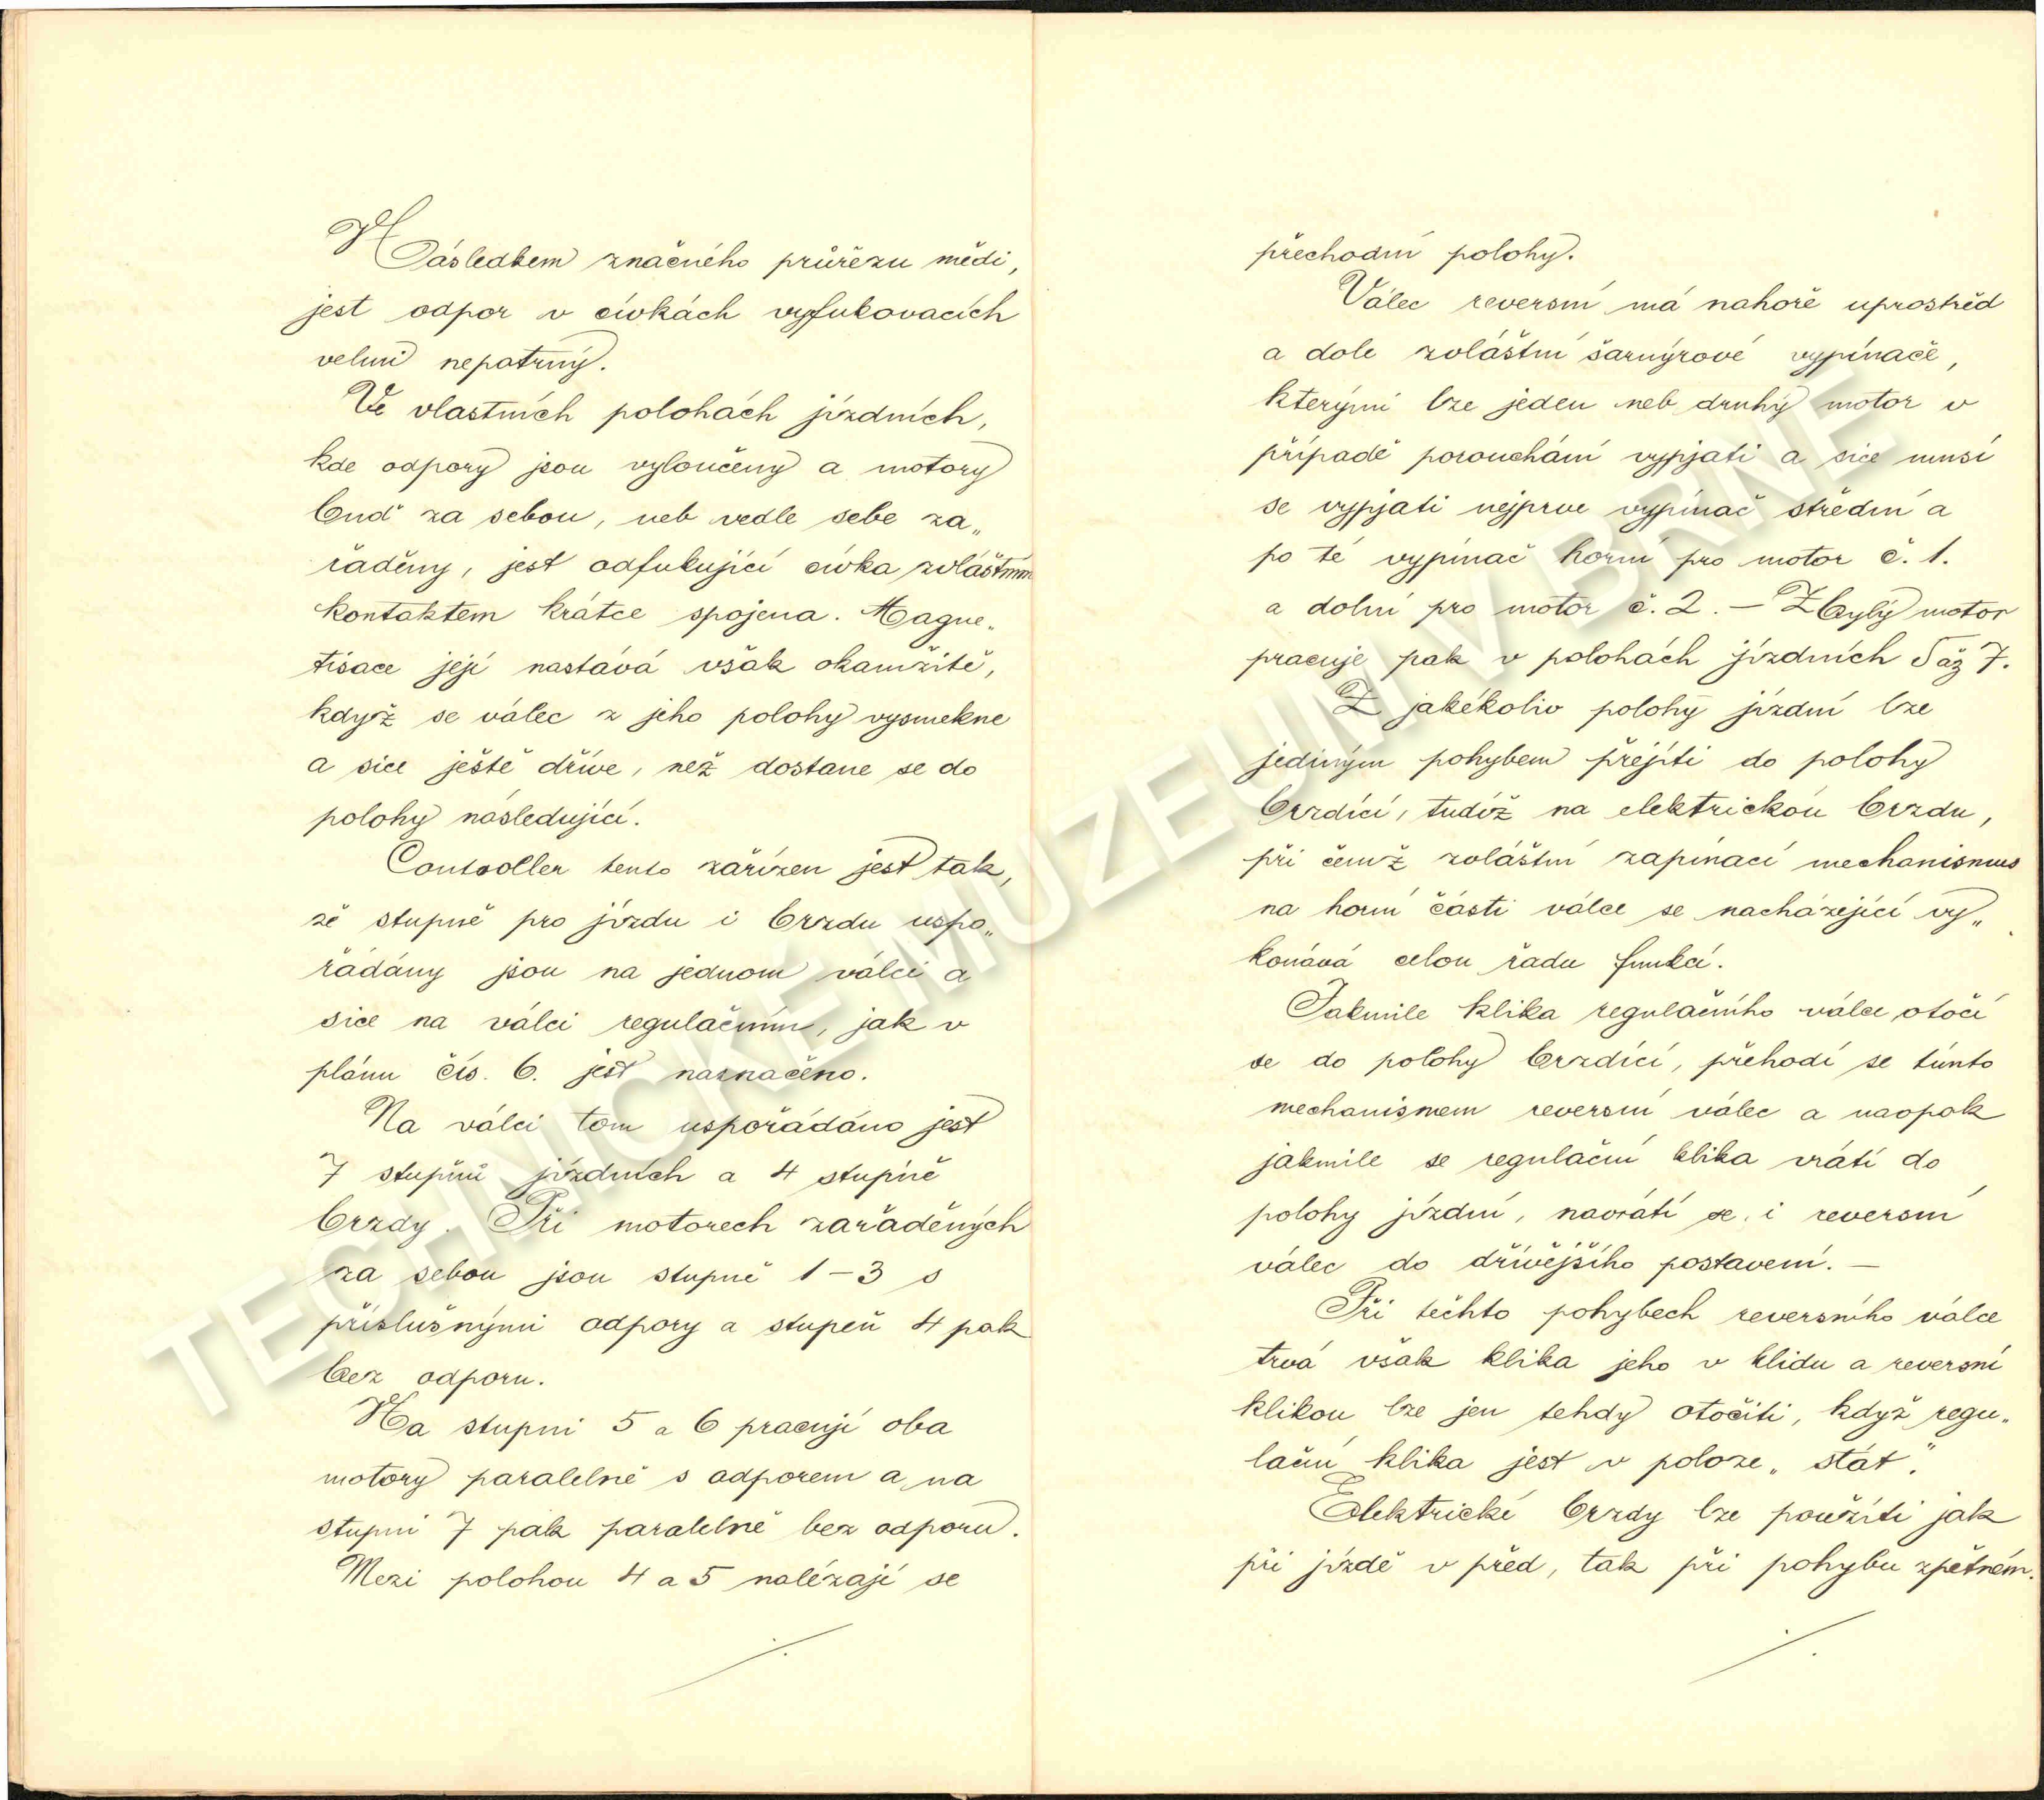 Následkem značného průřezu mědi,
jest odpor v cívkách vyfukovacích
velmi nepatrný.
Ve vlastních polohách jízdních,
kde odpory jsou vyloučeny a motory
buď za sebou, neb vedle sebe za„
řaděny, jest odfukující cívka zvláštním
kontaktem krátce spojena. Magne„
tisace její nastává však okamžitě,
když se válec z jeho polohy vysmekne
a sice ještě dříve, než dostane se do
polohy následující.
Controller tento zařízen jest tak,
že stupně pro jízdu i brzdu uspo„
řádány jsou na jednom válci a
sice na válci regulačním, jak v
plánu čís. 6. jest naznačeno.
Na válci tom uspořádáno jest
7 stupňů jízdních a 4 stupně
brzdy. Při motorech zařaděných
za sebou jsou stupně 1–3 s
příslušnými odpory a stupeň 4 pak
bez odporu.
Na stupni 5 a 6 pracují oba
motory paralelně s odporem a na
stupni 7 pak paralelně bez odporu.
Mezi polohou 4 a 5 nalézají se
./.
přechodní polohy.
Válec reversní má nahoře uprostřed
a dole zvláštní šarnýrové vypínače,
kterými lze jeden neb druhý motor v
případě porouchání vypjati a sice musí
se vypjati nejprve vypínač střední a
po té vypínač horní pro motor č. 1.
a dolní pro motor č. 2. – Zbylý motor
pracuje pak v polohách jízdních 5 až 7.
Z jakékoliv polohy jízdní lze
jediným pohybem přejíti do polohy
brzdící, tudíž na elektrickou brzdu,
při čemž zvláštní zapínací mechanismus
na horní části válce se nacházející vy„
konává celou řadu funkcí.
Jakmile klika regulačního válce otočí
se do polohy brzdící, přehodí se tímto
mechanismem reversní válec a naopak
jakmile se regulační klika vrátí do
polohy jízdní, navrátí se i reversní
válec do dřívějšího postavení. –
Při těchto pohybech reversního válce
trvá však klika jeho v klidu a reversní
klikou lze jen tehdy otočiti, když regu„
lační klika jest v poloze „stát“.
Elektrické brzdy lze použíti jak
při jízdě v před, tak při pohybu zpětném.
./.
TECHNICKÉ MUZEUM V BRNĚ